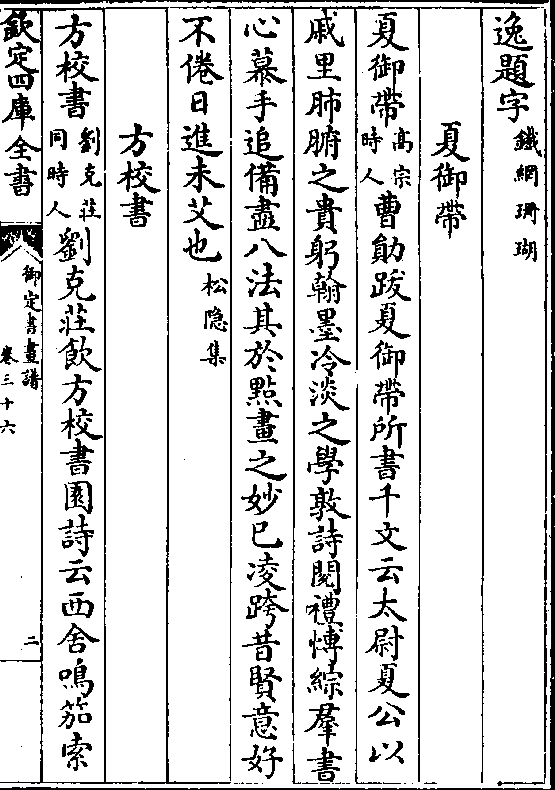 逸題字鐵網珊瑚
夏御帶
夏御帶高宗時人曹勛跋夏御帶所書千文云太尉夏公以
戚里肺腑之貴躬翰墨冷淡之學敦詩閱禮慱綜羣書
心慕手追備盡八法其於點畫之妙已凌跨昔賢意好
不倦日進未艾也松隐集
方校書
方校書劉克莊同時人劉克莊飲方校書園詩云西舍鳴笳索
欽定四庫全書
御定書畫譜
卷三十六
二